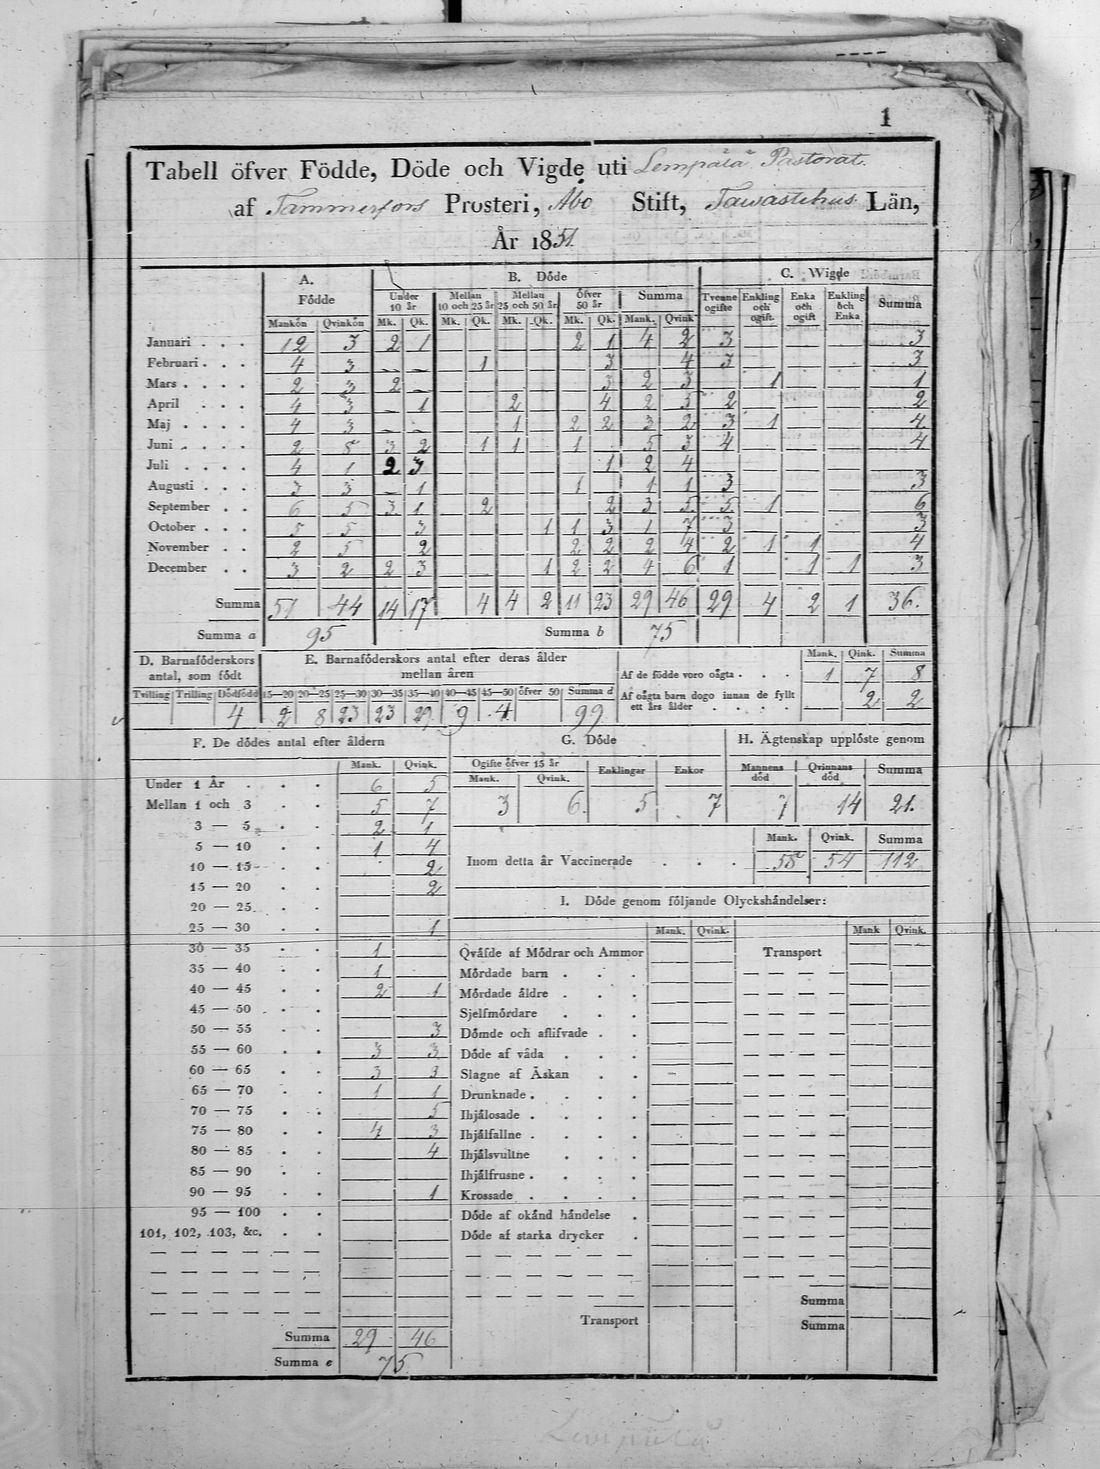 1
Tabell öfver Födde, Döde och Vigde uti Lempälä Pastorat.
af Tammerfors Prosteri, Åbo Stift, Tawastehus Län,
År 1851.
A. B. Döde C. Wigde
Födde Under 10 år Mellan 10 och 25 år Mellan 25 och 50 år Öfver 50 år Summa Tvenne ogifte Enkling och ogift. Enka och ogift Enkling och Enka Summa
Mankön Qvinkön Mk. Qk. Mk. Qk. Mk. Qk. Mk. Qk. Mank. Qvink
Januari . . . 12 3 2 1 2 1 4 2 3 3
Februari . . . 4 3 — — 1 3 4 3 3
Mars . . . . 2 3 2 3 2 3 1 1
April . . . 4 3 1 2 4 2 5 2 2
Maj . . . . 4 3 — — 1 2 2 3 2 3 1 4
Juni . . . . 2 5 3 2 1 1 1 5 3 4 4
Juli . . . . 4 1 2 3 1 2 4
Augusti . . . 3 3 — 1 1 1 1 3 3
September . . 6 5 3 1 2 2 3 5 5 1 6
October . . . 5 5 3 1 1 3 1 7 3 3
November . . 2 5 2 2 2 2 4 2 1 1 4
December . . 3 2 2 3 1 2 2 4 6 1 1 1 3
Summa 51 44 14 17 4 4 2 11 23 29 46 29 4 2 1 36.
Summa a 95 Summa b 75
D. Barnaföderskors antal, som födt
Tvilling Trilling Dödfödd
4
E. Barnaföderskors antal efter deras ålder
mellan åren
15—20 20—25 25—30 30—35 35—40 40—45 45—50 öfver 50 Summa d
2 8 23 23 29 9 4 99
Mank. Qink. Summa
Af de födde voro oägta . . . 1 7 8
Af oägta barn dogo innan de fyllt
ett års ålder . . . . 2 2
F. De dödes antal efter åldern
Mank. Qvink.
Under 1 År . . . 6 5
Mellan 1 och 3 . . 5 7
3 — 5 . . 2 1
5 — 10 . . 1 4
10 — 15 . . 2
15 — 20 . . 2
20 — 25 . .
25 — 30 . . 1
30 — 35 . . 1
35 — 40 . . 1
40 — 45 . . 2 1
45 — 50 . .
50 — 55 . . 3
55 — 60 . . 3 3
60 — 65 . . 3 3
65 — 70 . . 1 1
70 — 75 . . 5
75 — 80 . . 4 3
80 — 85 . . 4
85 — 90 . .
90 — 95 . . 1
95 — 100 . .
101, 102, 103, &c. . .
Summa 29 46
Summa e 75
G. Döde
Ogifte öfver 15 år Enklingar Enkor
Mank. Qvink.
3 6 5 7
H. Ägtenskap upplöste genom
Mannens död Qvinnans död Summa
7 14 21.
Mank. Qvink. Summa
Inom detta år Vaccinerade . . . 58 54 112
I. Döde genom följande Olyckshändelser:
Mank. Qvink. Mank Qvink.
Qväfde af Mödrar och Ammor Transport
Mördade barn . . .
Mördade äldre . . .
Sjelfmördare . .
Dömde och aflifvade . .
Döde af våda . . .
Slagne af Åskan . .
Drunknade . . . .
Ihjälosade . . . .
Ihjälfallne . . . .
Ihjälsvultne . . .
Ihjälfrusne . . . .
Krossade . . . .
Döde af okänd händelse .
Döde af starka drycker .
Summa
Transport Summa
Lempälä